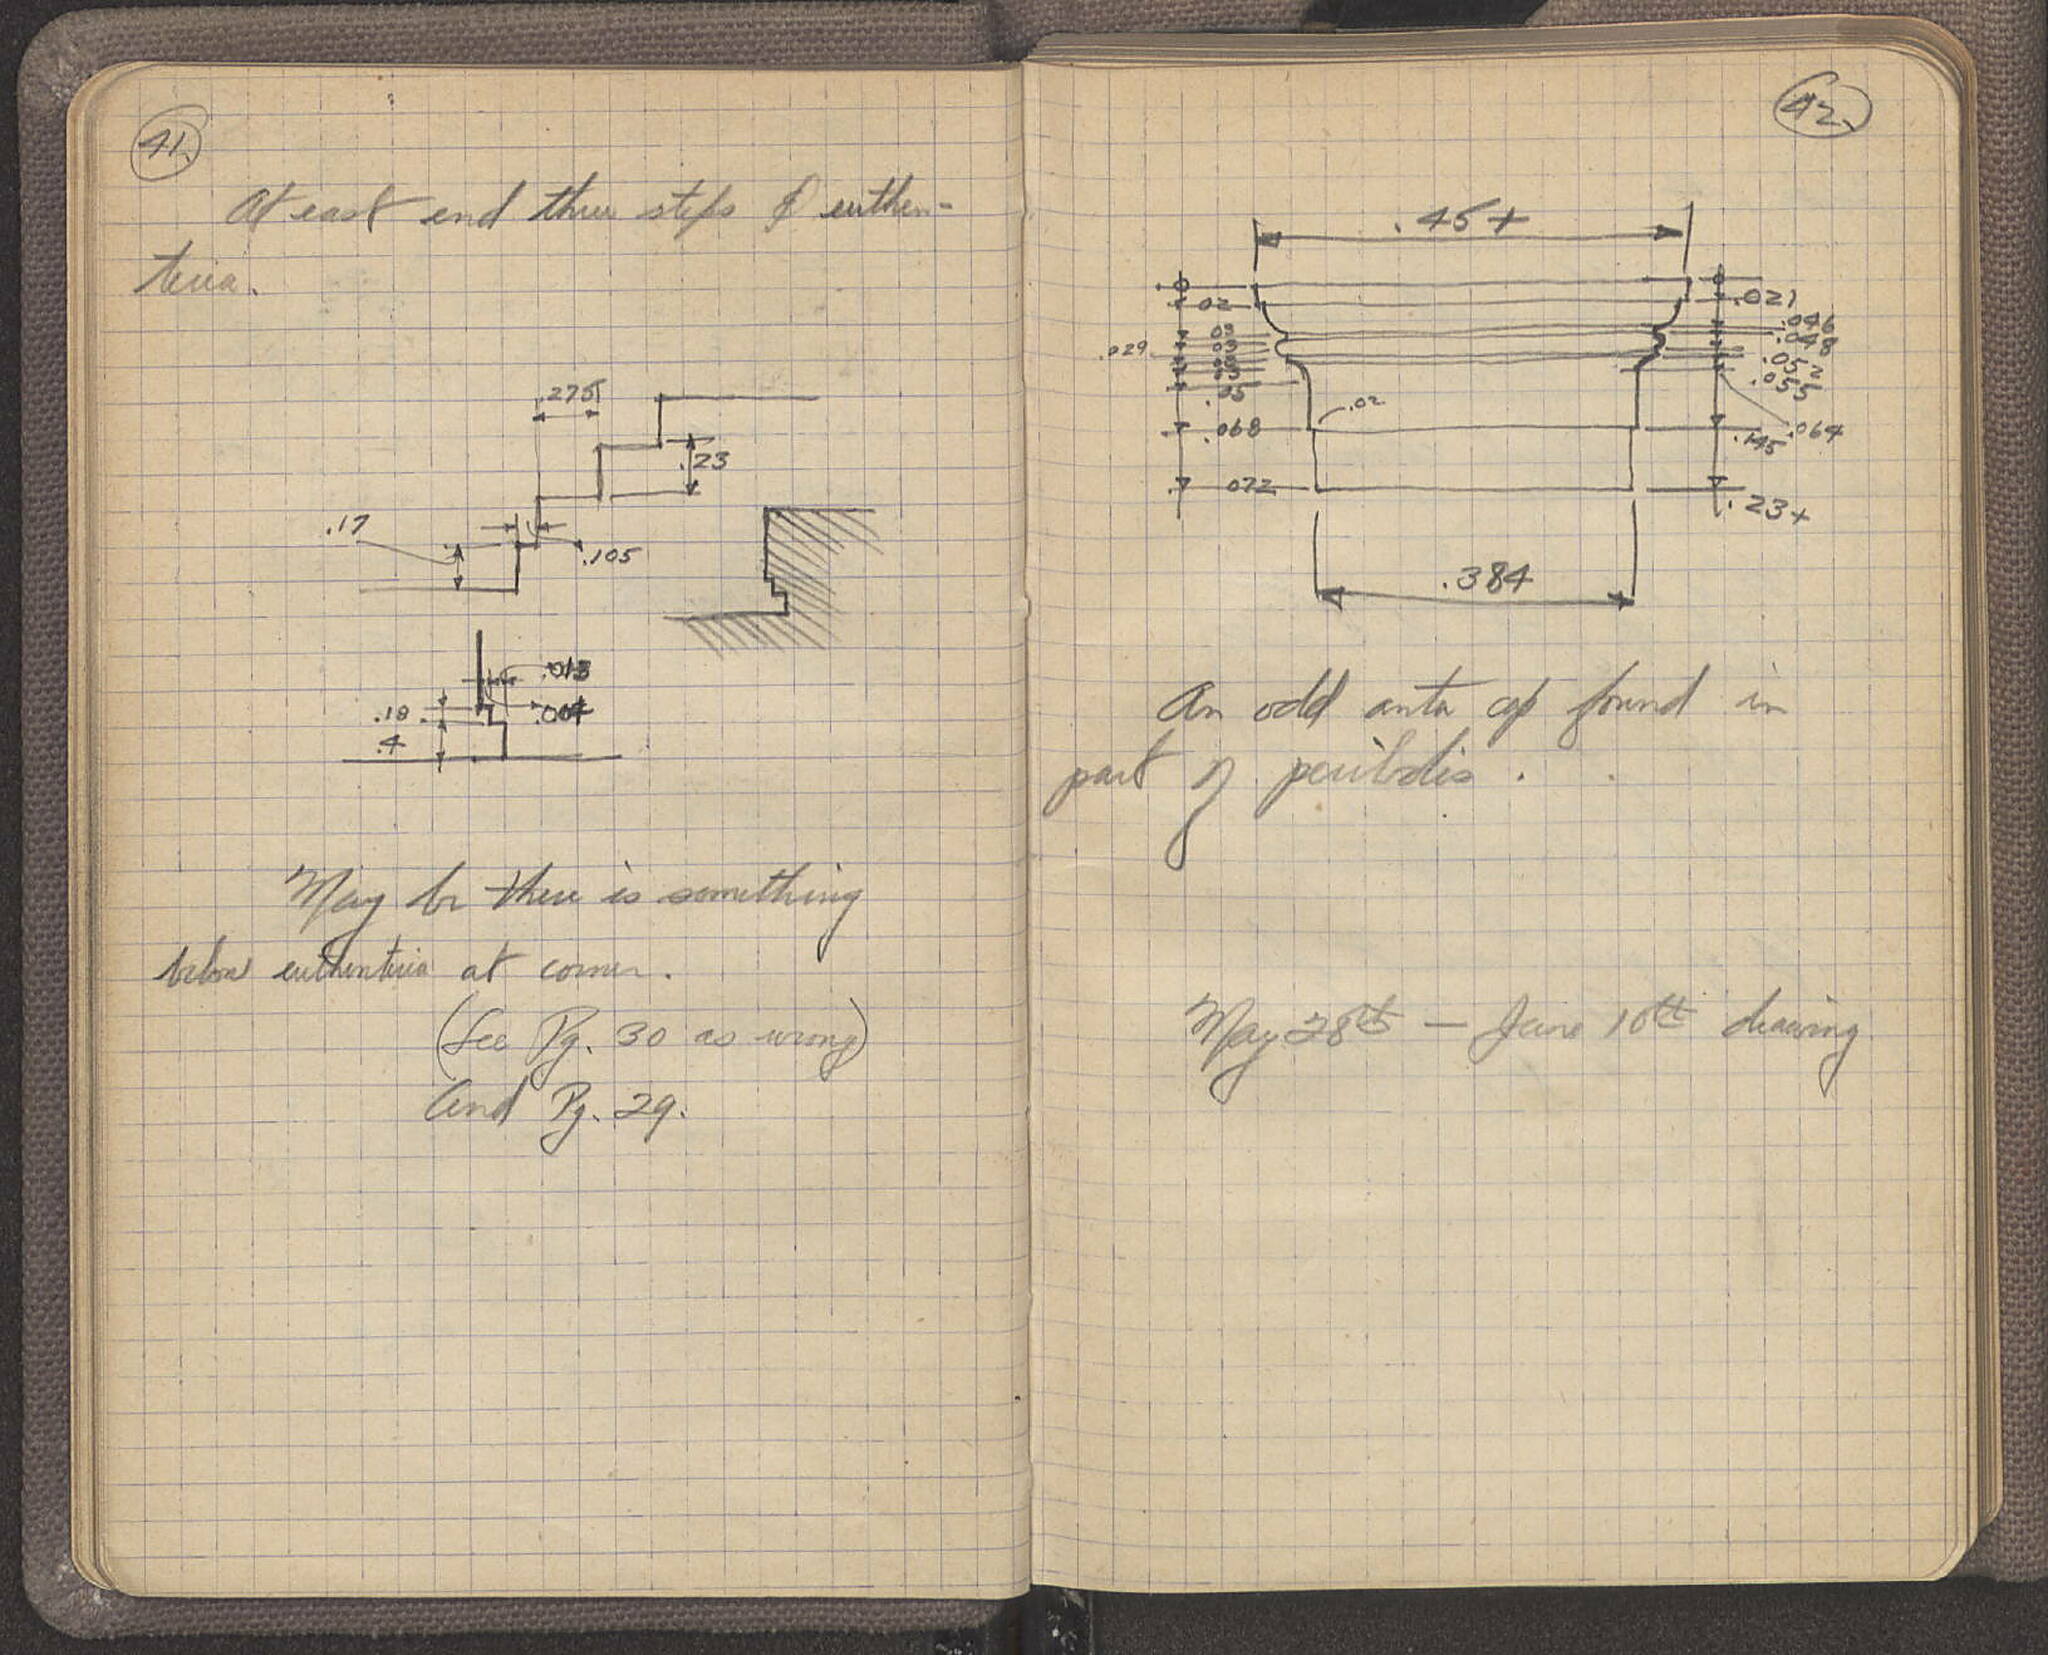 41.
At east end three steps & euthen-
teria.
.275
.23
.17
.105
.013
.18
.4
May be there is something
below euthenteria at corner.
(See Pg. 30 as wrong)
And Pg. 29.
42.
.45+
0
0
.02
.021
.03
.046
.029
.03
.048
.052
.055
.05
.02
.068
.145
.064
.072
.23+
.384
An odd anta cap found in
part of peribolis.
May 28th — June 10th drawing